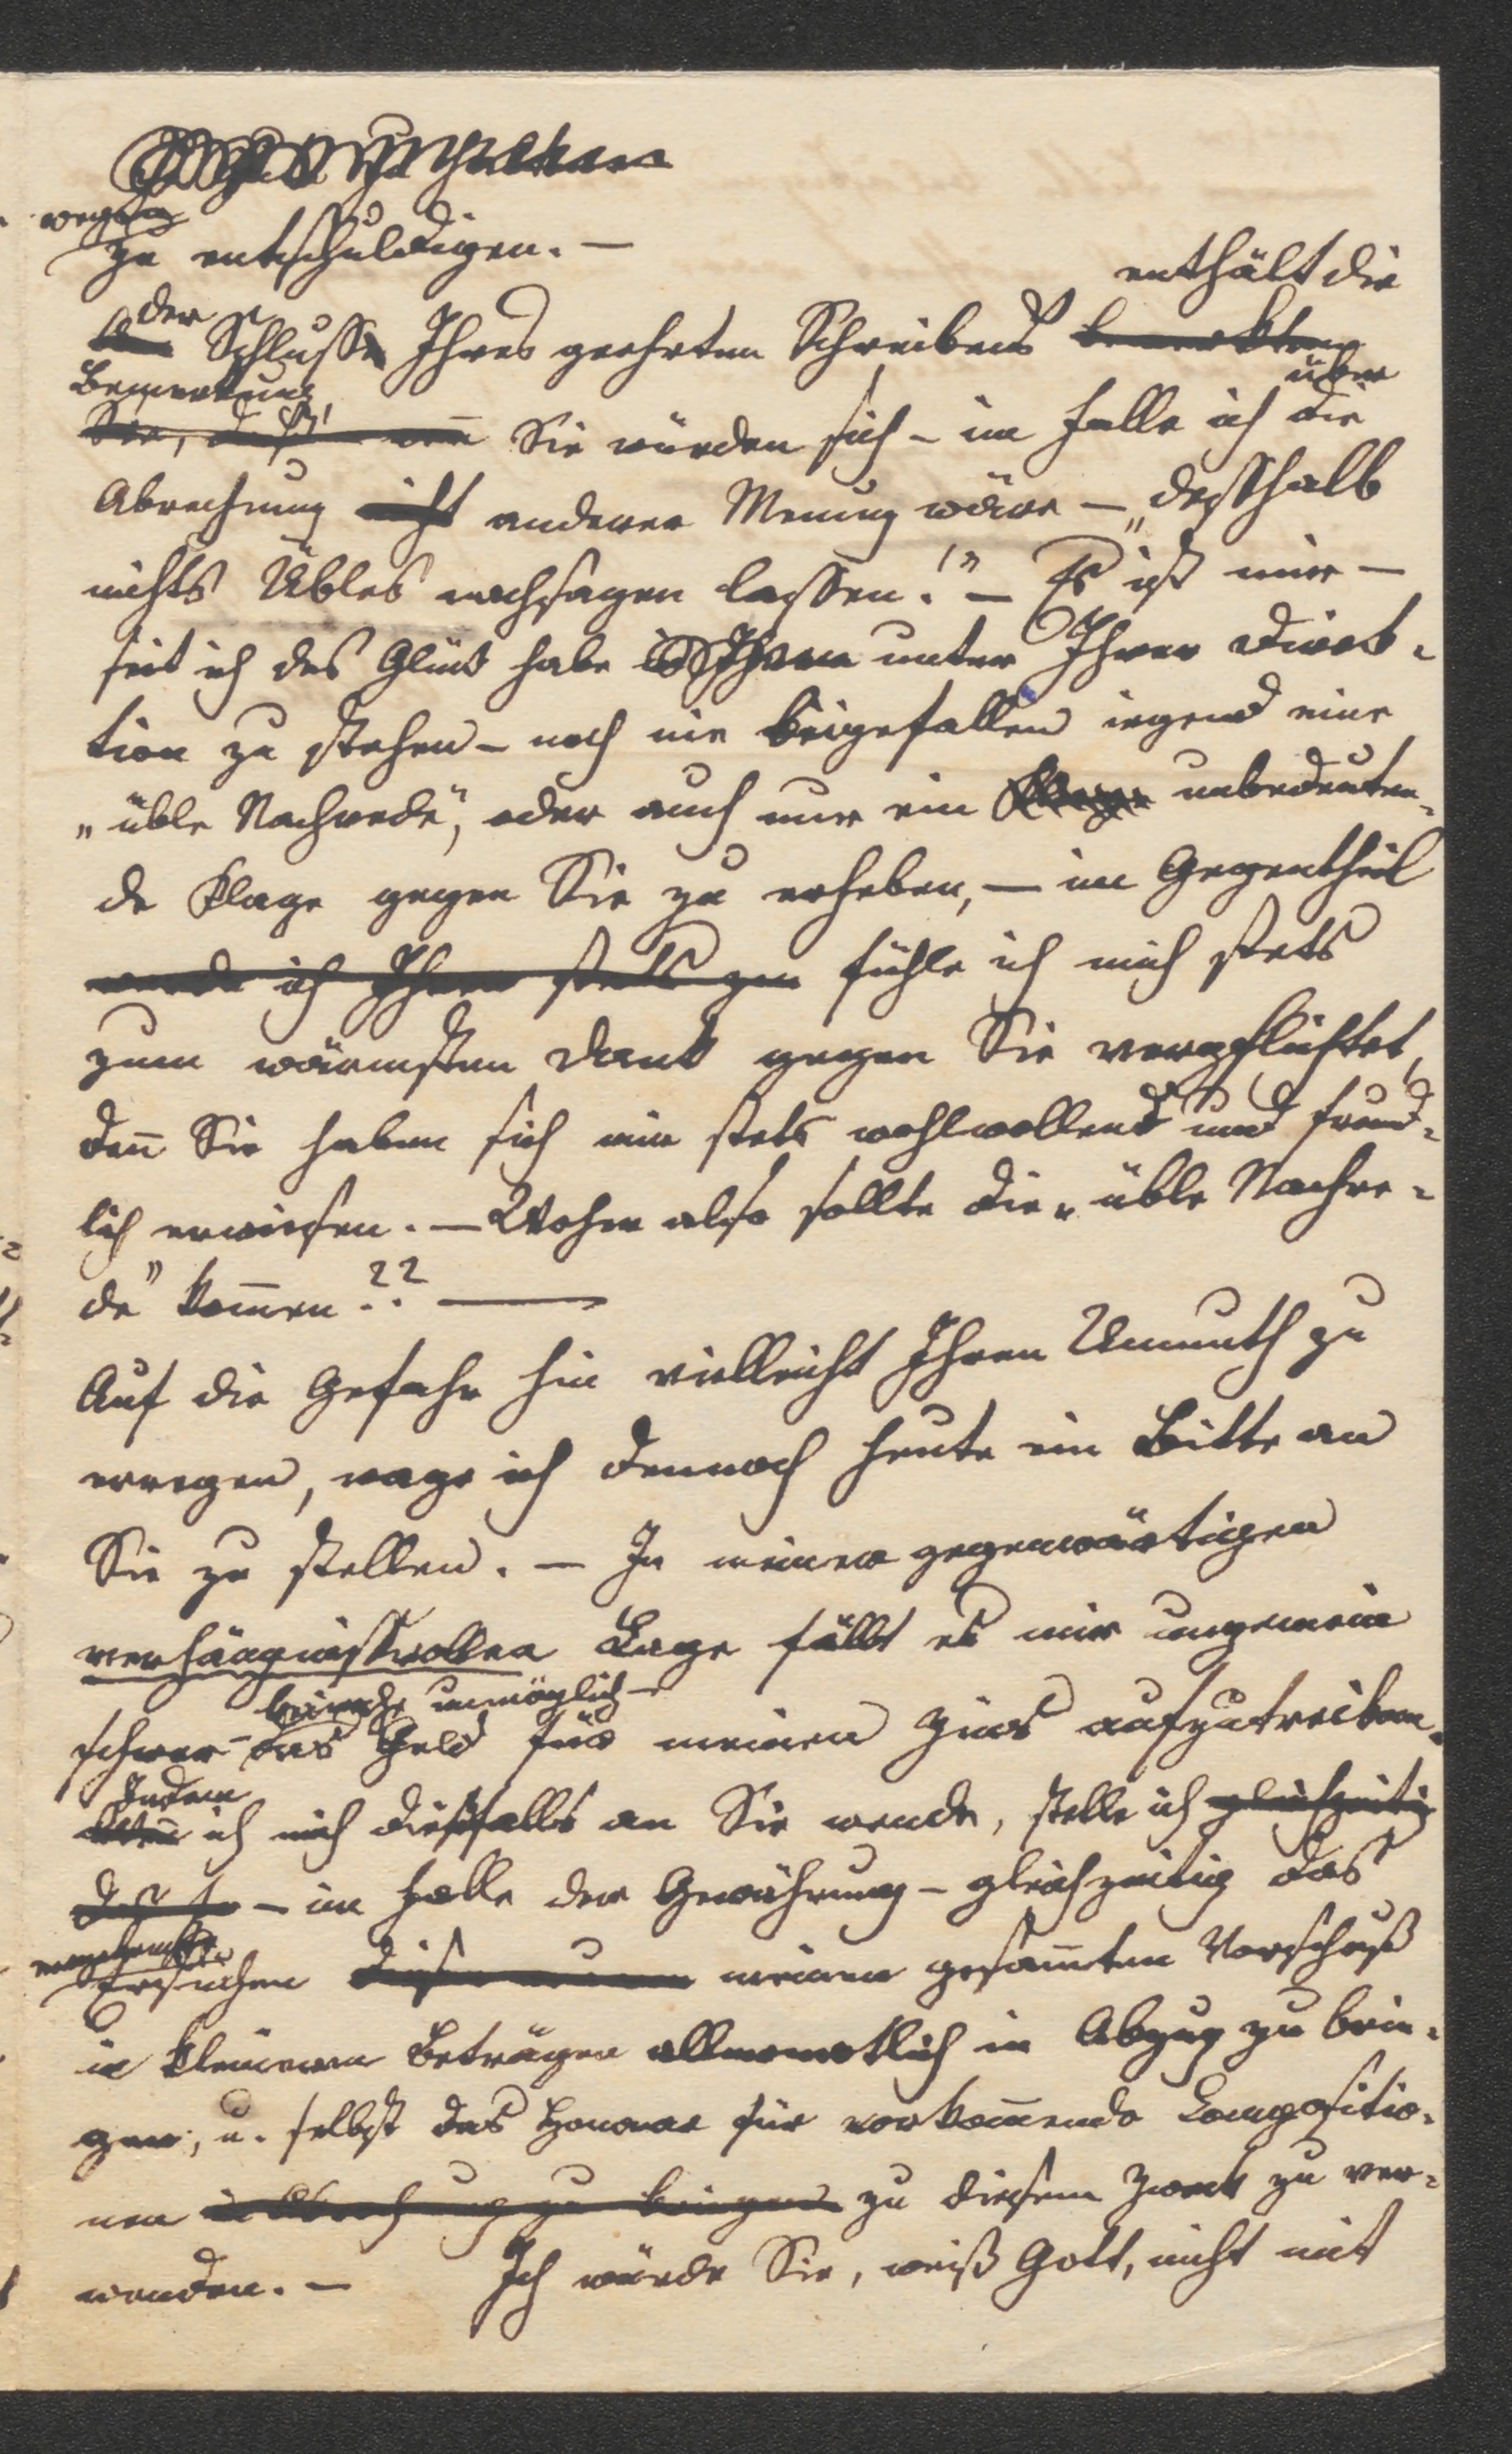 wegen
zu entschuldigen. —
enthält die
der Schluss Ihres geehrten Schreibens bemerkten
Bemerkung über
Sie, daß wenn Sie würden sich – im Falle ich die
Abrechnung nicht anderer Menung wäre – „deßhalb
nichts Übles nachsagen lassen!" – Es ist mir –
seit ich das Glück habe Ihnen unter Ihrer Direk-
tion zu stehen – noch nie beigefallen irgend eine
„üble Nachrede", oder auch nur ein Klage unbedeuten-
de Klage gegen Sie zu erheben, – im Gegentheil
werde ich Ihnen stets zu fühle ich mich stets
zum wärmsten Dank gegen Sie verpflichtet,
den̄ Sie haben sich mir stets wohlwollend und freund-
lich erwiesen. – Woher also sollte die „üble Nachre-
de" kom̄en?? —
Auf die Gefahr hin vielleicht Ihren Unmuth zu
erregen, wage ich dennoch heute ein Bitte an
Sie zu stellen. – In meiner gegenwärtigen
verhängnissvollen Lage fällt es mir ungemein
beinahe unmöglich –
schwer – das Geld für meinen Zins aufzutreiben.
Indem
Wen̄ ich mich dießfalls an Sie wende, stelle ich gleichzeitig
– im Falle der Gewährung – gleichzeitig das
Ersuchen diesen meinen gesam̄ten Vorschuß
in kleineren Beträgen allmonatlich in Abzug zu brin-
gen, u. selbst das Honorar für vorkom̄ende Compositio-
nen in Abrechnung zu bringen zu diesem Zweck zu ver-
wenden. – Ich würde Sie, weiß Gott, nicht mit